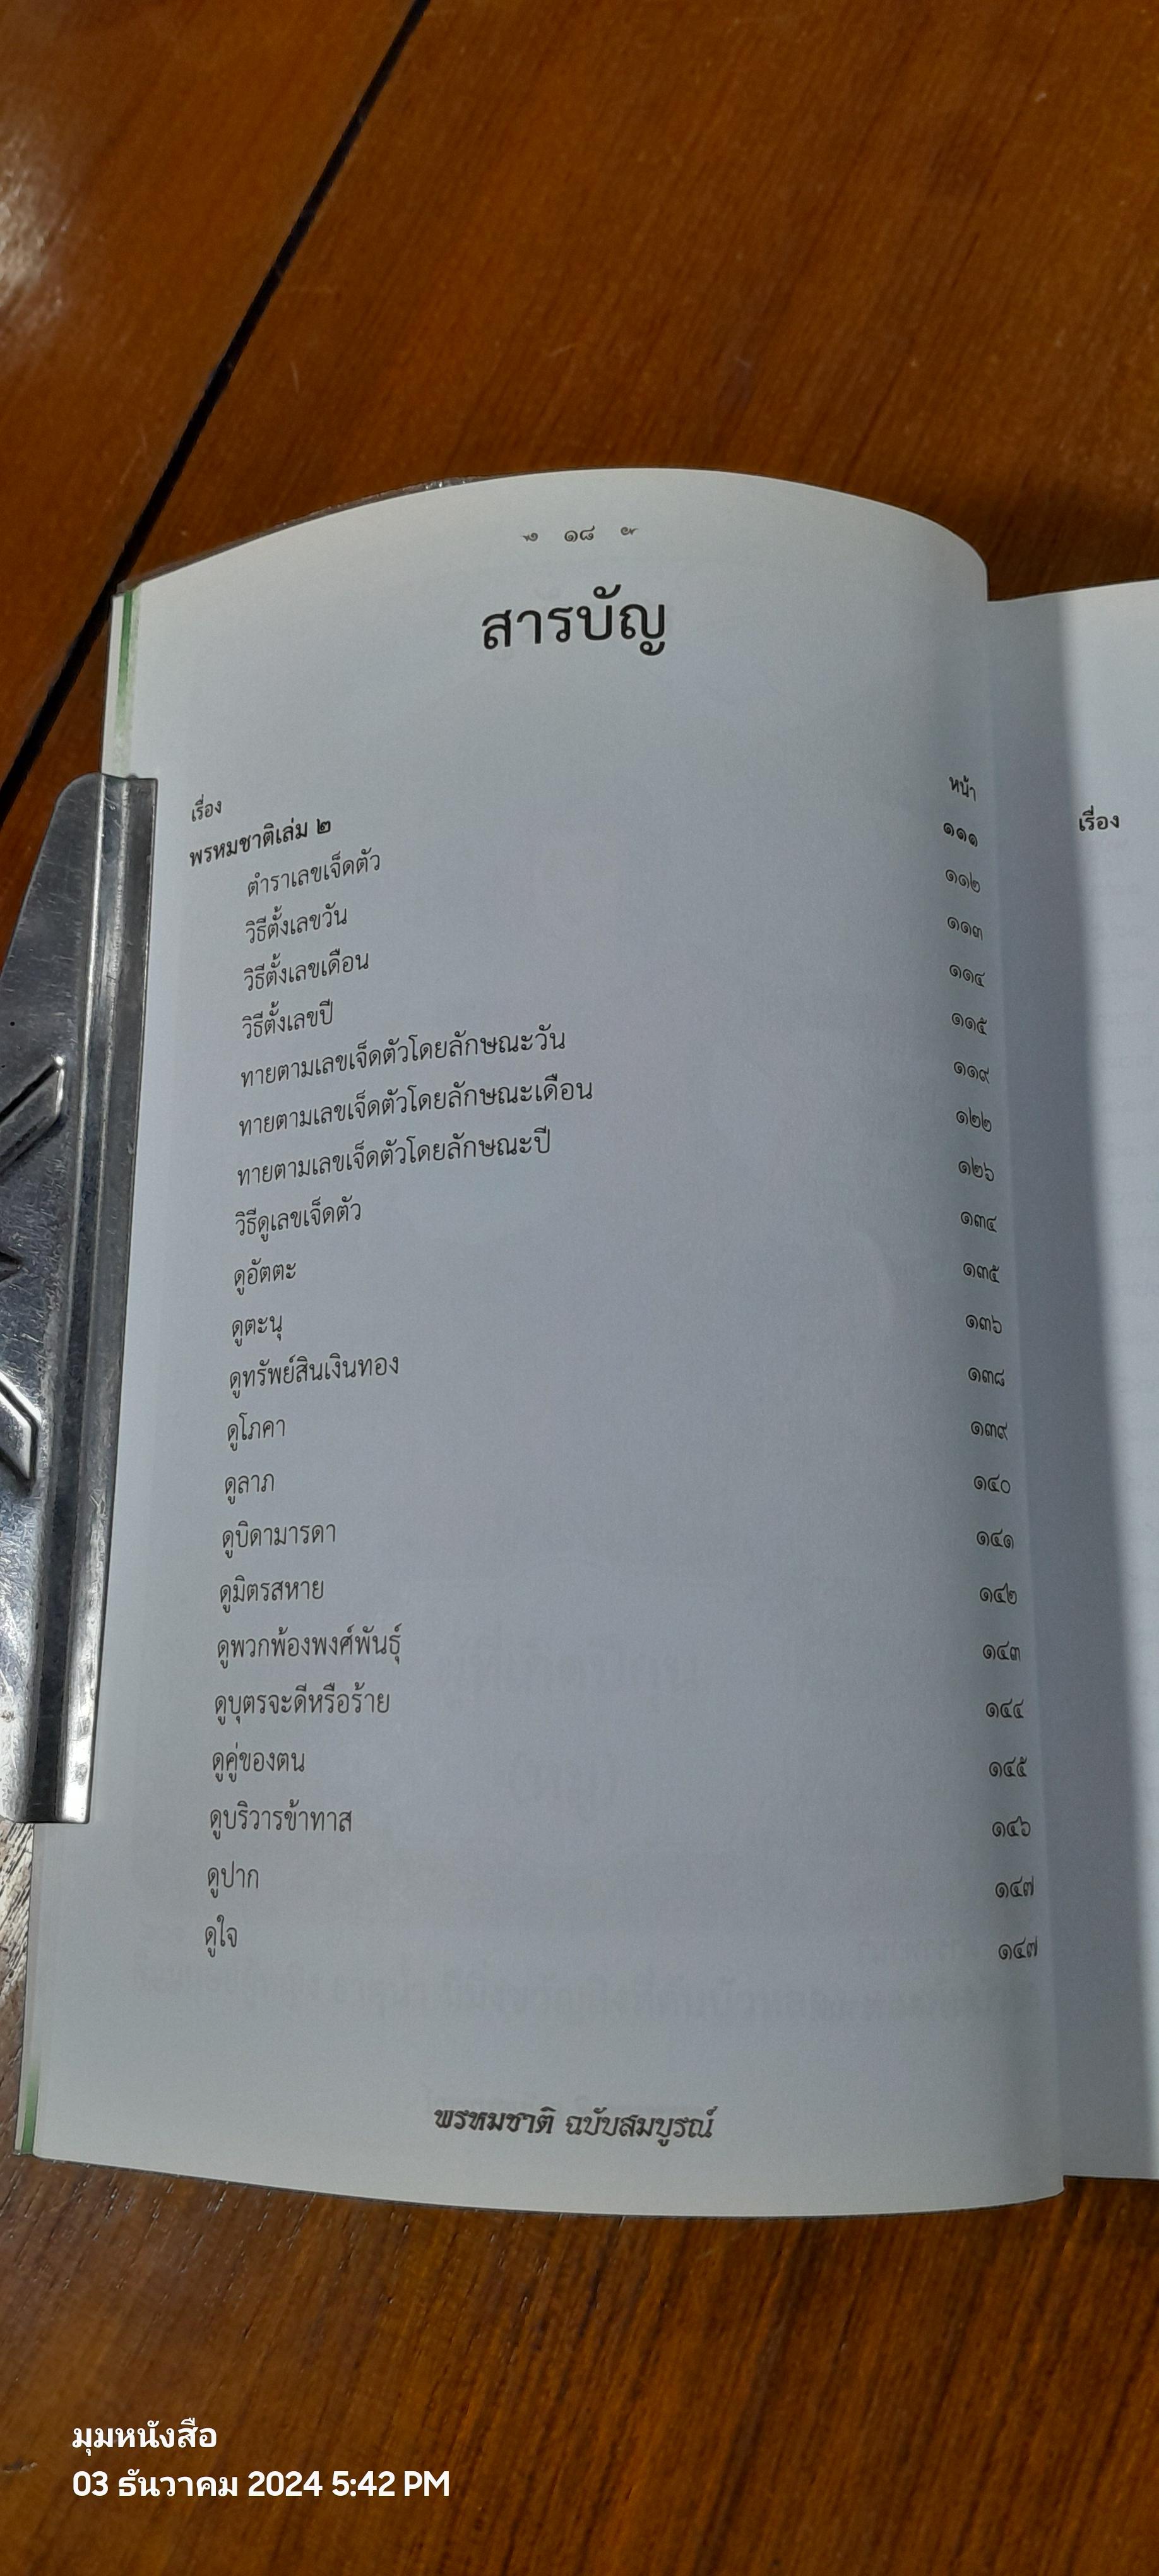 ๑๘
สารบัญ
เรื่อง หน้า
พรหมชาติเล่ม ๒ ๑๑๑
ตำราเลขเจ็ดตัว ๑๑๒
วิธีตั้งเลขวัน ๑๑๓
วิธีตั้งเลขเดือน ๑๑๔
วิธีตั้งเลขปี ๑๑๕
ทายตามเลขเจ็ดตัวโดยลักษณะวัน ๑๑๙
ทายตามเลขเจ็ดตัวโดยลักษณะเดือน ๑๒๒
ทายตามเลขเจ็ดตัวโดยลักษณะปี ๑๒๖
วิธีดูเลขเจ็ดตัว ๑๓๔
ดูอัตตะ ๑๓๕
ดูตะนุ ๑๓๖
ดูทรัพย์สินเงินทอง ๑๓๘
ดูโภคา ๑๓๙
ดูลาภ ๑๔๐
ดูบิดามารดา ๑๔๑
ดูมิตรสหาย ๑๔๒
ดูพวกพ้องพงศ์พันธุ์ ๑๔๓
ดูบุตรจะดีหรือร้าย ๑๔๔
ดูคู่ของตน ๑๔๕
ดูบริวารข้าทาส ๑๔๖
ดูปาก ๑๔๗
ดูใจ ๑๔๗
พรหมชาติ ฉบับสมบูรณ์
เรื่อง
มุมหนังสือ
03 ธันวาคม 2024 5:42 PM